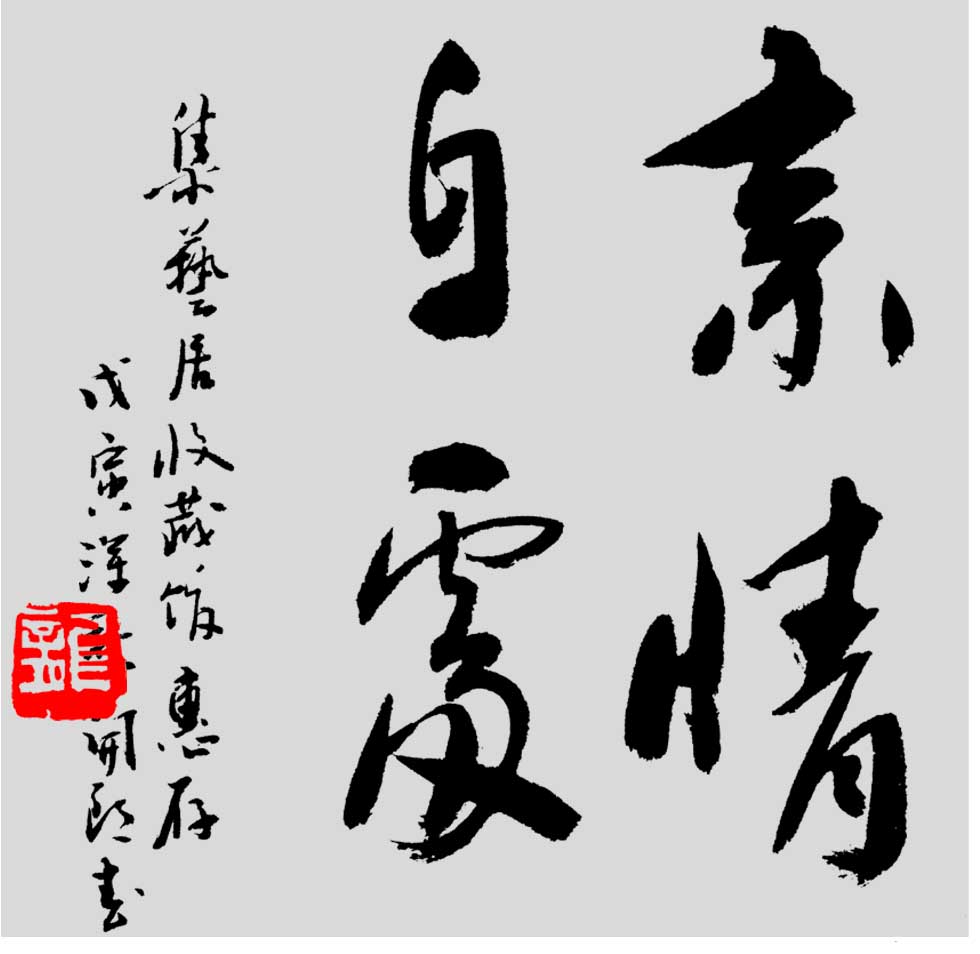 素情
自處
集藝居收藏館惠存
戊寅深開書